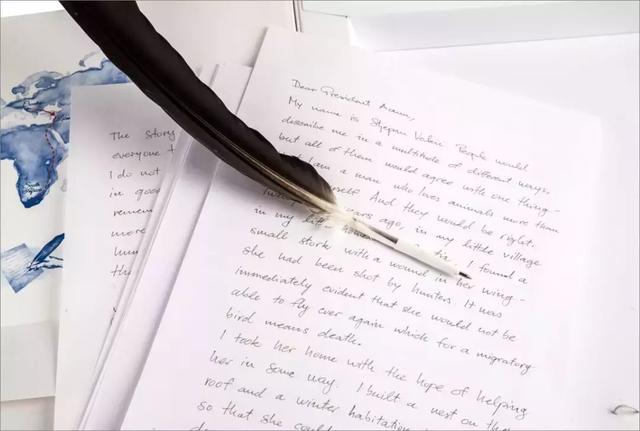 The story
everyone t
I do not
in good
remem
more
hun
thi
Dear President Aoun,
My name is Stjepan Vokić. People would
describe me in a multitude of different ways,
but all of them would agree with one thing -
I am a man who loves animals more than
myself. And they would be right.
years ago, in my little village
in my little I found a
small stork with a wound in her wing -
she had been shot by hunters. It was
immediately evident that she would not be
able to fly ever again which for a migratory
bird means death.
I took her home with the hope of helping
her in some way. I built a nest on the
roof and a winter habitation
so that she could